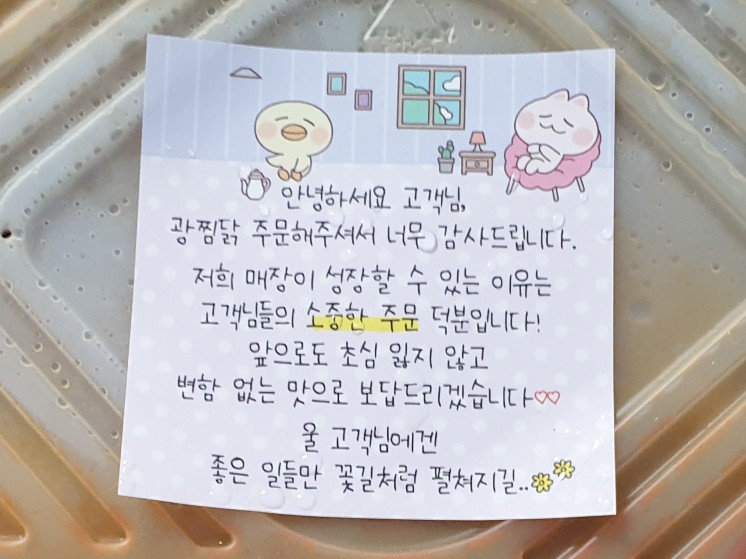 안녕하세요 고객님,
광찜닭 주문해주셔서 너무 감사드립니다.
저희 매장이 성장할 수 있는 이유는
고객님들의 소중한 주문 덕분입니다!
앞으로도 초심 잃지 않고
변함 없는 맛으로 보답드리겠습니다
울 고객님에겐
좋은 일들만 꽃길처럼 펼쳐지길..